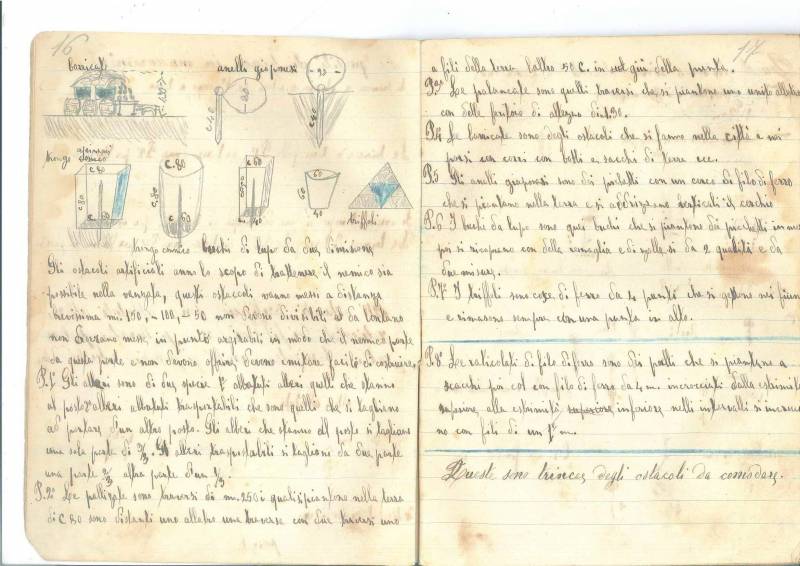 16
barricat
anelli giaponesi
90
c.40
c.80
c. 80
60
c.60
60
40
triffoli
bochi di lupo da due dimisioni
Gli ostacoli artificiali anno lo scopo di trattenere il nemico sia
possibile nella vanzata, questi ostaccoli vanno messi a distanza
brevissima mi. 150, - 100, - 50 non devono
non messi in punto in modo che il nemico
da questa parte e non devono devono
P. 1° Gli alberi sono di due specie 1° abbatuti alberi quelli che stanno
al posto 2° alberi abbatuti trasportabili che sono quelli che si tagliono
ad portare d'un altro posto. Gli alberi che stanno al posto si tagliano
una sola parte di 2/3. Gli alberi trasportabili si tagliono da due parte
una parte 2/3 altra parte d'un 1/3.
P. 2° Le pallizate sono traversi di m. 250 i quali si piantono nella terra
di C. 80 sono distanti uno allatro una traversa con due traversi uno
17
a fili della terra l'altro 50 c. in giù della punta.
P. 3° Le palancate sono quelli traversi che si piantono uno unito allatro
con delle feritoio di altezza di 1.30.
P. 4 Le barricate sono degli ostacoli che si fanno nella città e nei
paesi con carri con botti e sacchi di terra ecc.
P. 5 Gli anelli giaponesi sono di pichetti con un cerco di filo di ferro
che si piantano nella terra e si il cerchio
P. 6 I buchi da lupo sono quei buchi che si piantono dei pichetti in mezzo
poi si ricoprono con della ramaglia e di nolla si da 2 qualità e da
due misure.
P. 7° I triffoli sono cose di ferro da 4 punti che si gettono nei fiumi
e rimasono sempre con una punta in alto.
P. 8° Le raticolati di filo di ferro sono dei palli che si piantono a
scacchi poi col con filo di ferro da 4 m. incrociati dalla estrimità
superiore alla estrimità superiore inferiore nelli intervalli si incrocia
no con fili di un 1° m.
Queste sono trincee degli ostacoli da comodare.